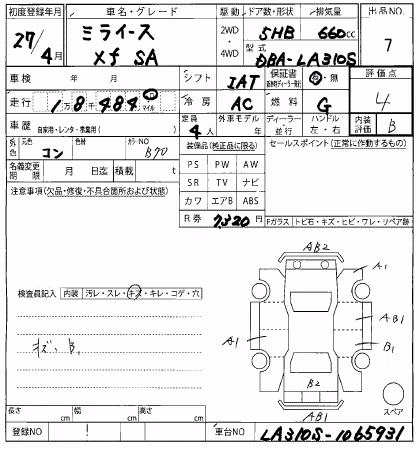 初度登録年月 車名・グレード 駆動 ドア数・形状 排気量 出品NO
27/4月 ミライース 2WD・4WD 5HB 660cc 7
Xf SA 型式 DBA-LA310S
車検 年 月 シフト IAT 保証書 有・無 評価点
走行 1万8484 km マイル 冷房 AC 燃料 G 4
車歴 自家用・レンタ・事業用( ) 定員 4人 外車モデル 年 ディーラー・並行 ハンドル 左・右 内装評価 B
外色 元色 コン 色替 カラーNO B70 装備品(純正品に限る) セールスポイント(正常に作動するもの)
名義変更期限 月 日迄 積載 t PS PW AW
注意事項(欠品・修復・不具合箇所および状態) SR TV ナビ
カワ エアB ABS
R券 7,320 Fガラス トビ石・キズ・ヒビ・ワレ・リペア跡
AB2
A1
検査員記入 内装 汚レ・スレ・キズ・キレ・コゲ・穴
AB1
A1
B1
キズ、B1
B2
AB1
スペア
長さ cm 幅 cm 高さ cm
登録NO ! 車台NO LA310S-1065931